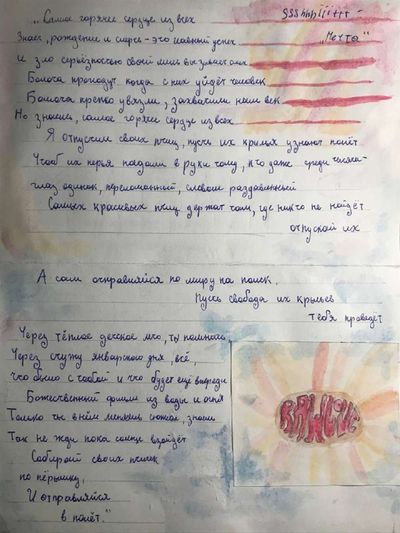 „Самое горячее сердце из всех
Sssshhhhiiittt
Знает, рождение и смерть - это главный успех
„Мечта"
И зло серьёзностью своей лишь вызывает смех
Болота пропадут когда с них уйдёт человек
Болота крепко увязли, захватили ним век
Но знаешь, самое горячее сердце из всех
Я отпустил своих птиц, пусть их крылья узнают полёт
Чтоб их перья попадали в руки тому, кто даже среди
одинок, переломанный, словом раздавленный
Самых красивых птиц держат там, где никто не найдёт
отпускай их
А сам отправляйся по миру на поиск.
Пусть свобода их крыльев
тебя проведёт
Через тёплое детское лето, ты помнишь,
Через стужу январского дня, всё,
что было с тобой и что будет ещё впереди
Божественный фильм из воды и огня
Только ты в нём меняешь сюжет, знаешь
Так не жди пока солнце взойдёт
Собирай своих птичек
по пёрышку,
И отправляйся
в полёт."